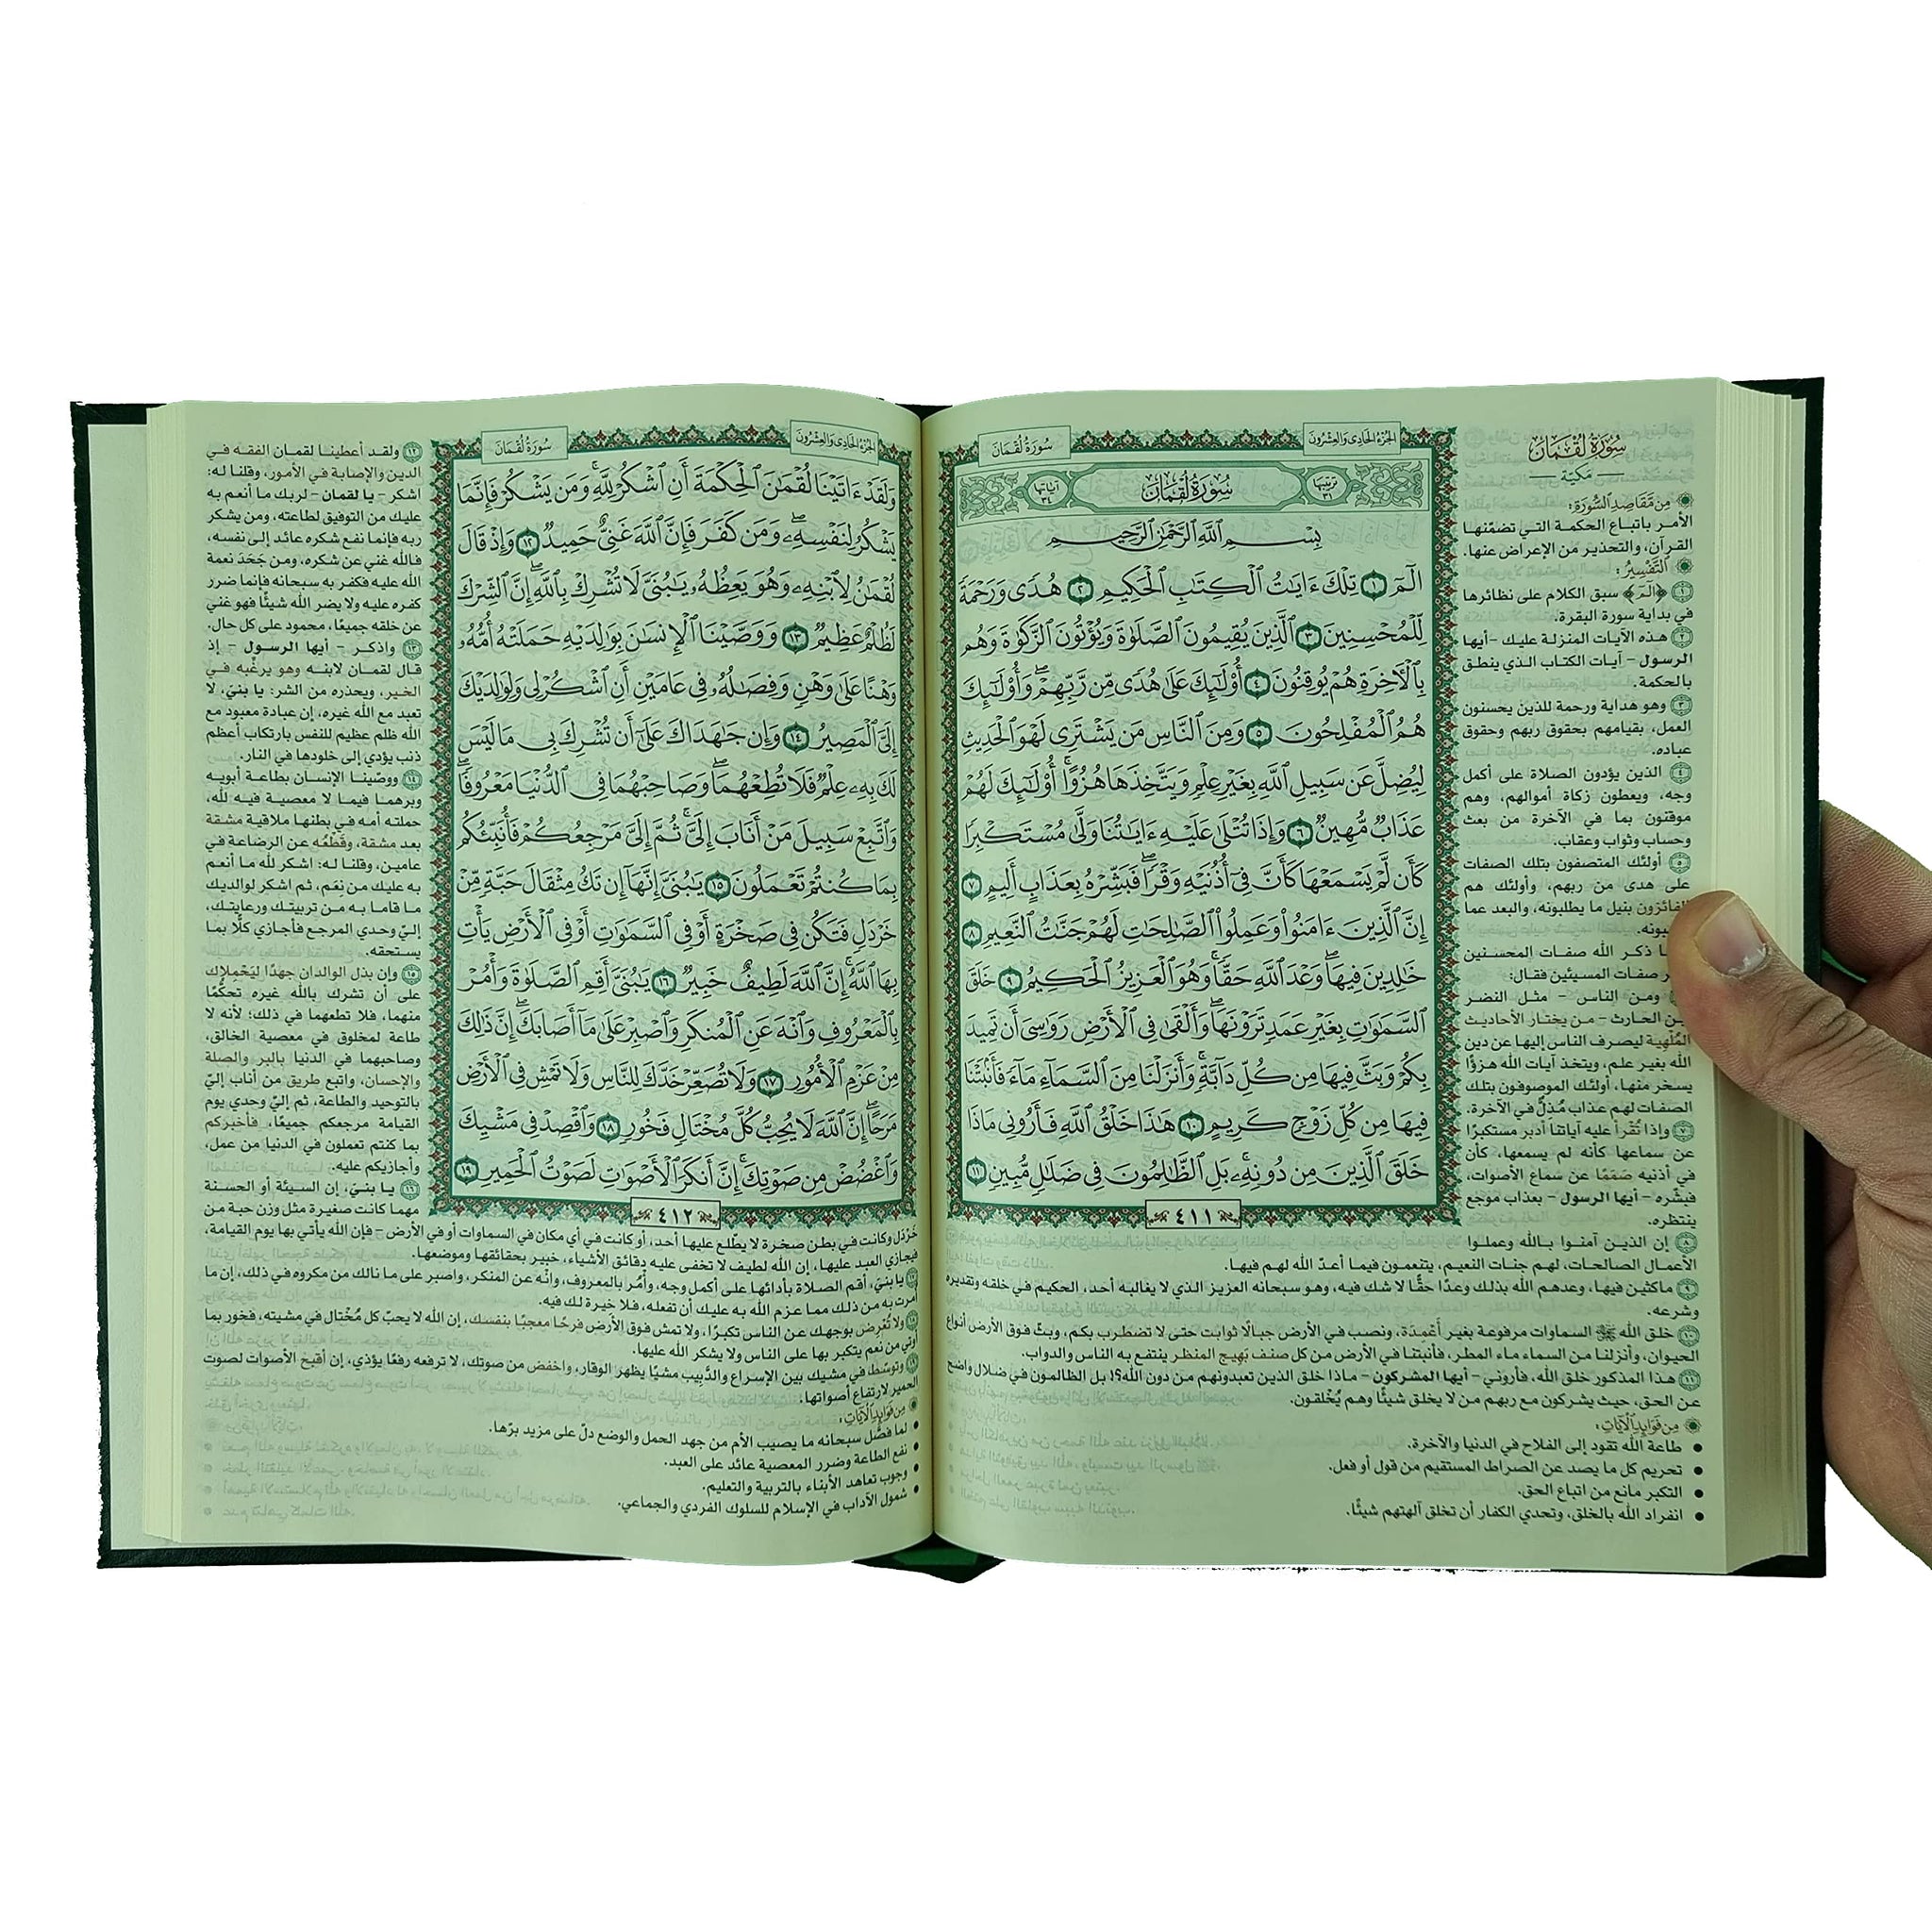 سورة لقمان
مكية
من مقاصد السورة:
الأمر باتباع الحكمة التي تضمّنها
القرآن، والتحذير من الإعراض عنها.
التفسير:
١ ﴿الٓمٓ﴾ سبق الكلام على نظائرها
في بداية سورة البقرة.
٢ هذه الآيات المنزلة عليك -أيها
الرسول- آيات الكتاب الذي ينطق
بالحكمة.
٣ وهو هداية ورحمة للذين يحسنون
العمل، بقيامهم بحقوق ربهم وحقوق
عباده.
٤ الذين يؤدون الصلاة على أكمل
وجه، ويعطون زكاة أموالهم، وهم
موقنون بما في الآخرة من بعث
وحساب وثواب وعقاب.
٥ أولئك المتصفون بتلك الصفات
على هدى من ربهم، وأولئك هم
الفائزون بنيل ما يطلبونه، والبعد عما
ذكر الله صفات المحسنين
صفات المسيئين فقال:
ومن الناس - مثل النضر
بن الحارث - من يختار الأحاديث
المُلْهِية ليصرف الناس إليها عن دين
الله بغير علم، ويتخذ آيات الله هزؤًا
يسخر منها، أولئك الموصوفون بتلك
الصفات لهم عذاب مُذِلٌّ في الآخرة.
٧ وإذا تُقْرأ عليه آياتنا أدبر مستكبرًا
عن سماعها كأنه لم يسمعها، كأن
في أذنيه صممًا عن سماع الأصوات،
فبشّره - أيها الرسول - بعذاب موجع
ينتظره.
٨ إن الذين آمنوا بالله وعملوا
الأعمال الصالحات، لهم جنات النعيم، يتنعمون فيما أعدّ الله لهم فيها.
٩ ماكثين فيها، وعدهم الله بذلك وعدًا حقًّا لا شك فيه، وهو سبحانه العزيز الذي لا يغالبه أحد، الحكيم في خلقه وتقديره
وشرعه.
١٠ خلق الله ﷻ السماوات مرفوعة بغير أَعْمِدَة، ونصب في الأرض جبالًا ثوابت حتى لا تضطرب بكم، وبثّ فوق الأرض أنواع
الحيوان، وأنزلنا من السماء ماء المطر، فأنبتنا في الأرض من كل صنف بَهِيج المنظر ينتفع به الناس والدواب.
١١ هذا المذكور خلق الله، فأروني - أيها المشركون - ماذا خلق الذين تعبدونهم من دون الله؟! بل الظالمون في ضلال واضح
عن الحق، حيث يشركون مع ربهم من لا يخلق شيئًا وهم يُخْلقون.
من فوائد الآيات:
• طاعة الله تقود إلى الفلاح في الدنيا والآخرة.
• تحريم كل ما يصد عن الصراط المستقيم من قول أو فعل.
• التكبر مانع من اتباع الحق.
• انفراد الله بالخلق، وتحدي الكفار أن تخلق آلهتهم شيئًا.
الجزء الحادي والعشرون
سورة لقمان
ترتيبها ٣١
سورة لقمان
آياتها ٣٤
بِسْمِ ٱللَّهِ ٱلرَّحْمَٰنِ ٱلرَّحِيمِ
الٓمٓ ١ تِلْكَ ءَايَٰتُ ٱلْكِتَٰبِ ٱلْحَكِيمِ ٢ هُدًى وَرَحْمَةً
لِّلْمُحْسِنِينَ ٣ ٱلَّذِينَ يُقِيمُونَ ٱلصَّلَوٰةَ وَيُؤْتُونَ ٱلزَّكَوٰةَ وَهُم
بِٱلْءَاخِرَةِ هُمْ يُوقِنُونَ ٤ أُوْلَٰٓئِكَ عَلَىٰ هُدًى مِّن رَّبِّهِمْۖ وَأُوْلَٰٓئِكَ
هُمُ ٱلْمُفْلِحُونَ ٥ وَمِنَ ٱلنَّاسِ مَن يَشْتَرِى لَهْوَ ٱلْحَدِيثِ
لِيُضِلَّ عَن سَبِيلِ ٱللَّهِ بِغَيْرِ عِلْمٍ وَيَتَّخِذَهَا هُزُوًاۚ أُوْلَٰٓئِكَ لَهُمْ
عَذَابٌ مُّهِينٌ ٦ وَإِذَا تُتْلَىٰ عَلَيْهِ ءَايَٰتُنَا وَلَّىٰ مُسْتَكْبِرًا
كَأَن لَّمْ يَسْمَعْهَا كَأَنَّ فِىٓ أُذُنَيْهِ وَقْرًاۖ فَبَشِّرْهُ بِعَذَابٍ أَلِيمٍ ٧
إِنَّ ٱلَّذِينَ ءَامَنُواْ وَعَمِلُواْ ٱلصَّٰلِحَٰتِ لَهُمْ جَنَّٰتُ ٱلنَّعِيمِ ٨
خَٰلِدِينَ فِيهَاۖ وَعْدَ ٱللَّهِ حَقًّاۚ وَهُوَ ٱلْعَزِيزُ ٱلْحَكِيمُ ٩ خَلَقَ
ٱلسَّمَٰوَٰتِ بِغَيْرِ عَمَدٍ تَرَوْنَهَاۖ وَأَلْقَىٰ فِى ٱلْأَرْضِ رَوَٰسِىَ أَن تَمِيدَ
بِكُمْ وَبَثَّ فِيهَا مِن كُلِّ دَآبَّةٍۚ وَأَنزَلْنَا مِنَ ٱلسَّمَآءِ مَآءً فَأَنۢبَتْنَا
فِيهَا مِن كُلِّ زَوْجٍ كَرِيمٍ ١٠ هَٰذَا خَلْقُ ٱللَّهِ فَأَرُونِى مَاذَا
خَلَقَ ٱلَّذِينَ مِن دُونِهِۦۚ بَلِ ٱلظَّٰلِمُونَ فِى ضَلَٰلٍ مُّبِينٍ ١١
٤١١
الجزء الحادي والعشرون
سورة لقمان
وَلَقَدْ ءَاتَيْنَا لُقْمَٰنَ ٱلْحِكْمَةَ أَنِ ٱشْكُرْ لِلَّهِۚ وَمَن يَشْكُرْ فَإِنَّمَا
يَشْكُرُ لِنَفْسِهِۦۖ وَمَن كَفَرَ فَإِنَّ ٱللَّهَ غَنِىٌّ حَمِيدٌ ١٢ وَإِذْ قَالَ
لُقْمَٰنُ لِٱبْنِهِۦ وَهُوَ يَعِظُهُۥ يَٰبُنَىَّ لَا تُشْرِكْ بِٱللَّهِۖ إِنَّ ٱلشِّرْكَ
لَظُلْمٌ عَظِيمٌ ١٣ وَوَصَّيْنَا ٱلْإِنسَٰنَ بِوَٰلِدَيْهِ حَمَلَتْهُ أُمُّهُۥ
وَهْنًا عَلَىٰ وَهْنٍ وَفِصَٰلُهُۥ فِى عَامَيْنِ أَنِ ٱشْكُرْ لِى وَلِوَٰلِدَيْكَ
إِلَىَّ ٱلْمَصِيرُ ١٤ وَإِن جَٰهَدَاكَ عَلَىٰٓ أَن تُشْرِكَ بِى مَا لَيْسَ
لَكَ بِهِۦ عِلْمٌ فَلَا تُطِعْهُمَاۖ وَصَاحِبْهُمَا فِى ٱلدُّنْيَا مَعْرُوفًاۖ
وَٱتَّبِعْ سَبِيلَ مَنْ أَنَابَ إِلَىَّۚ ثُمَّ إِلَىَّ مَرْجِعُكُمْ فَأُنَبِّئُكُم
بِمَا كُنتُمْ تَعْمَلُونَ ١٥ يَٰبُنَىَّ إِنَّهَآ إِن تَكُ مِثْقَالَ حَبَّةٍ مِّنْ
خَرْدَلٍ فَتَكُن فِى صَخْرَةٍ أَوْ فِى ٱلسَّمَٰوَٰتِ أَوْ فِى ٱلْأَرْضِ يَأْتِ
بِهَا ٱللَّهُۚ إِنَّ ٱللَّهَ لَطِيفٌ خَبِيرٌ ١٦ يَٰبُنَىَّ أَقِمِ ٱلصَّلَوٰةَ وَأْمُرْ
بِٱلْمَعْرُوفِ وَٱنْهَ عَنِ ٱلْمُنكَرِ وَٱصْبِرْ عَلَىٰ مَآ أَصَابَكَۖ إِنَّ ذَٰلِكَ
مِنْ عَزْمِ ٱلْأُمُورِ ١٧ وَلَا تُصَعِّرْ خَدَّكَ لِلنَّاسِ وَلَا تَمْشِ فِى ٱلْأَرْضِ
مَرَحًاۖ إِنَّ ٱللَّهَ لَا يُحِبُّ كُلَّ مُخْتَالٍ فَخُورٍ ١٨ وَٱقْصِدْ فِى مَشْيِكَ
وَٱغْضُضْ مِن صَوْتِكَۚ إِنَّ أَنكَرَ ٱلْأَصْوَٰتِ لَصَوْتُ ٱلْحَمِيرِ ١٩
٤١٢
١٢ ولقد أعطينا لقمان الفقه في
الدين والإصابة في الأمور، وقلنا له:
اشكر - يا لقمان - لربك ما أنعم به
عليك من التوفيق لطاعته، ومن يشكر
ربه فإنما نفع شكره عائد إلى نفسه،
فالله غني عن شكره، ومن جَحَدَ نعمة
الله عليه فكفر به سبحانه فإنما ضرر
كفره عليه ولا يضر الله شيئًا فهو غني
عن خلقه جميعًا، محمود على كل حال.
١٣ واذكر - أيها الرسول - إذ
قال لقمان لابنه وهو يرغّبه في
الخير، ويحذره من الشر: يا بنيّ، لا
تعبد مع الله غيره، إن عبادة معبود مع
الله ظلم عظيم للنفس بارتكاب أعظم
ذنب يؤدي إلى خلودها في النار.
١٤ ووصّينا الإنسان بطاعة أبويه
وبرهما فيما لا معصية فيه لله،
حملته أمه في بطنها ملاقية مشقة
بعد مشقة، وقَطْعُه عن الرضاعة في
عامين، وقلنا له: اشكر لله ما أنعم
به عليك من نِعَم، ثم اشكر لوالديك
ما قاما به من تربيتك ورعايتك،
إليّ وحدي المرجع فأجازي كلًّا بما
يستحقه.
١٥ وإن بذل الوالدان جهدًا ليَحْمِلاك
على أن تشرك بالله غيره تحكُّمًا
منهما، فلا تطعهما في ذلك؛ لأنه لا
طاعة لمخلوق في معصية الخالق،
وصاحبهما في الدنيا بالبر والصلة
والإحسان، واتبع طريق من أناب إليّ
بالتوحيد والطاعة، ثم إليّ وحدي يوم
القيامة مرجعكم جميعًا، فأخبركم
بما كنتم تعملون في الدنيا من عمل،
وأجازيكم عليه.
١٦ يا بنيّ، إن السيئة أو الحسنة
مهما كانت صغيرة مثل وزن حبة من
خَرْدَل وكانت في بطن صخرة لا يطّلع عليها أحد، أو كانت في أي مكان في السماوات أو في الأرض - فإن الله يأتي بها يوم القيامة،
فيجازي العبد عليها، إن الله لطيف لا تخفى عليه دقائق الأشياء، خبير بحقائقها وموضعها.
١٧ يا بنيّ، أقم الصلاة بأدائها على أكمل وجه، وأْمُر بالمعروف، وانْه عن المنكر، واصبر على ما نالك من مكروه في ذلك، إن ما
أمرت به من ذلك مما عزم الله به عليك أن تفعله، فلا خيرة لك فيه.
١٨ ولا تُعْرِض بوجهك عن الناس تكبرًا، ولا تمش فوق الأرض فرحًا معجبًا بنفسك، إن الله لا يحبّ كل مُخْتال في مشيته، فخور بما
أوتي من نعم يتكبر بها على الناس ولا يشكر الله عليها.
١٩ وتوسّط في مشيك بين الإسراع والدَّبِيب مشيًا يظهر الوقار، واخفض من صوتك، لا ترفعه رفعًا يؤذي، إن أقبح الأصوات لصوت
الحمير لارتفاع أصواتها.
من فوائد الآيات:
• لما فصّل سبحانه ما يصيب الأم من جهد الحمل والوضع دلّ على مزيد برّها.
• نفع الطاعة وضرر المعصية عائد على العبد.
• وجوب تعاهد الأبناء بالتربية والتعليم.
• شمول الآداب في الإسلام للسلوك الفردي والجماعي.